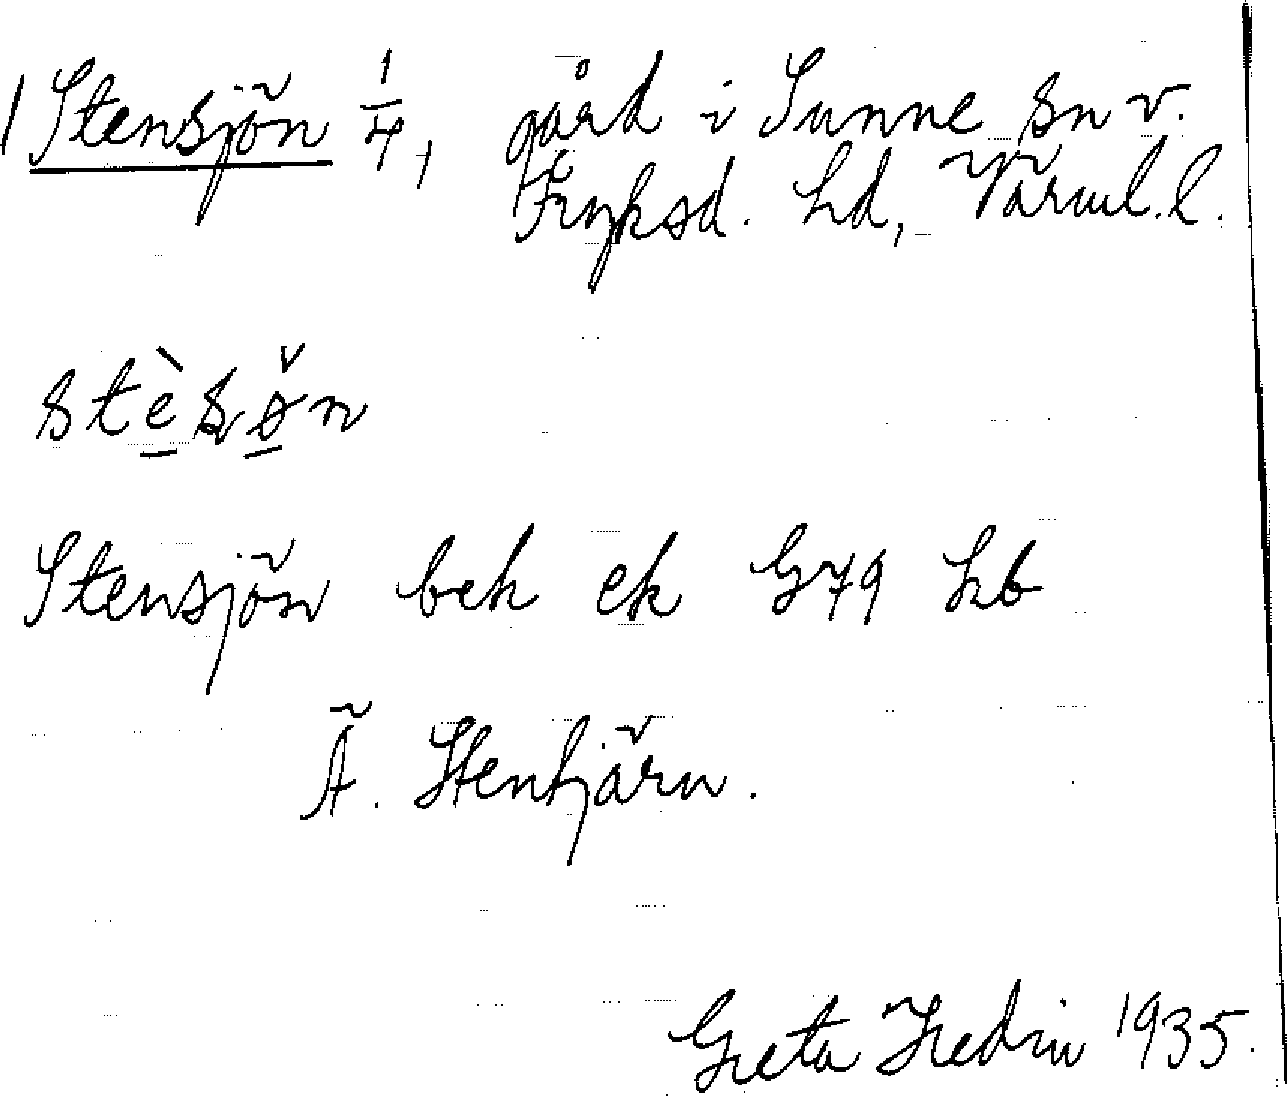 1 Stensjön 1/4, gård i Sunne sn v.
Fryksd. hd, Värml. l.
stèsø̌n
Stensjön bek ek G79 hb
Ä. Stentjärn.
Greta Hedin 1935.